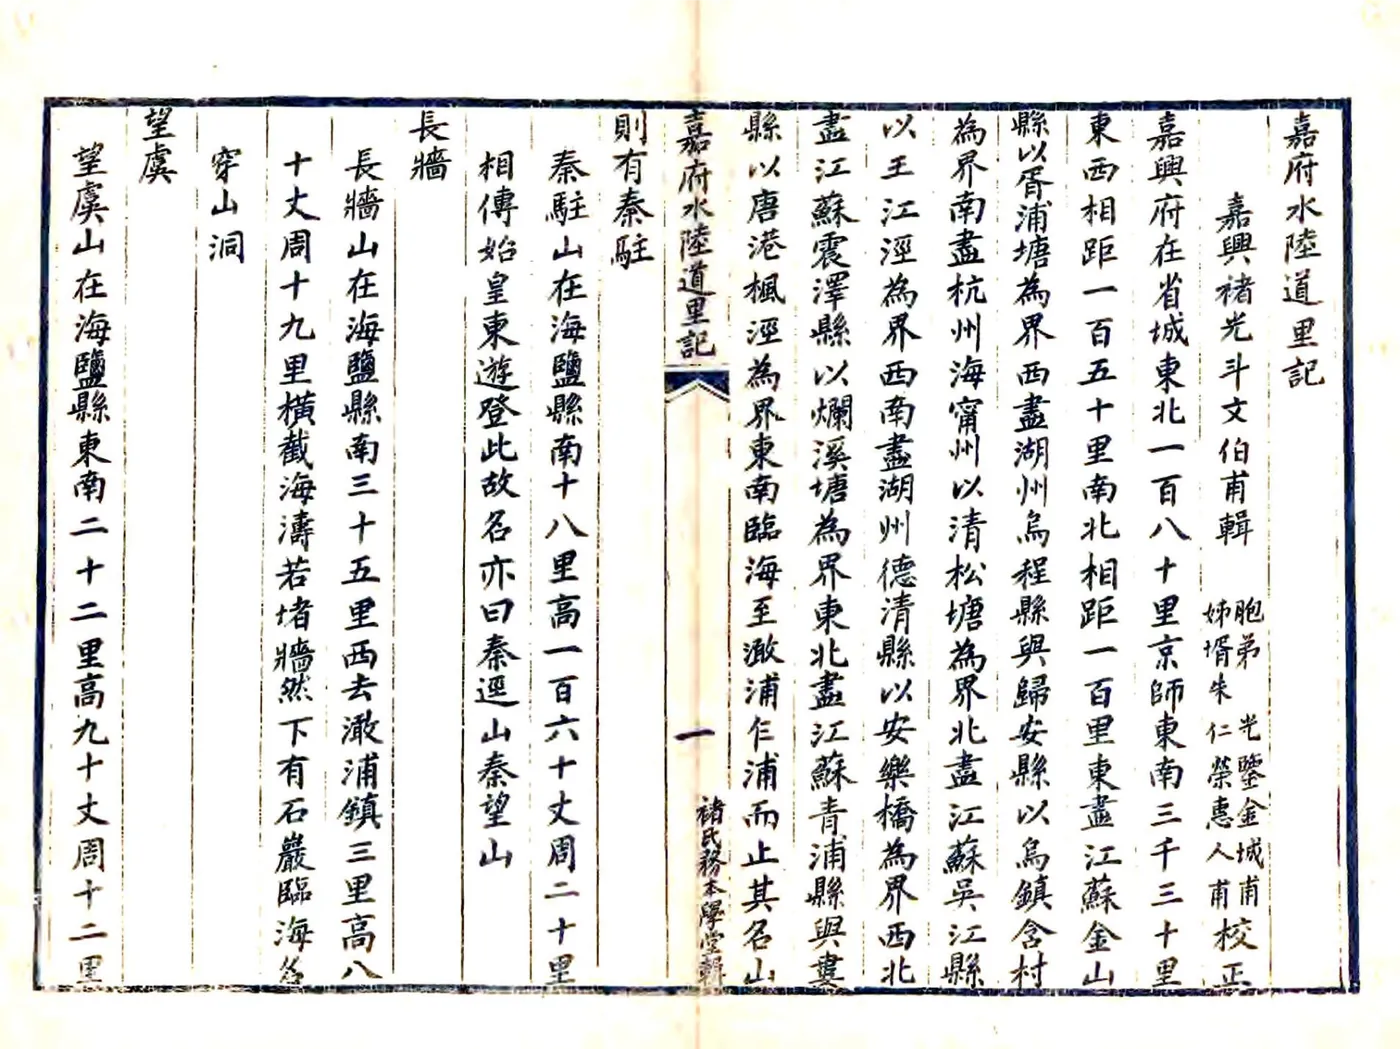 嘉府水陸道里記
嘉興褚光斗文伯甫輯
胞弟 光鑒金城甫
姊壻朱 仁榮惠人甫 校正
嘉興府在省城東北一百八十里京師東南三千三十里
東西相距一百五十里南北相距一百里東盡江蘇金山
縣以胥浦塘為界西盡湖州烏程縣與歸安縣以烏鎮含村
為界南盡杭州海甯州以清松塘為界北盡江蘇吳江縣
以王江涇為界西南盡湖州德清縣以安樂橋為界西北
盡江蘇震澤縣以爛溪塘為界東北盡江蘇青浦縣與婁
縣以唐港楓涇為界東南臨海至澉浦仁浦而止其名山
嘉府水陸道里記
一
褚氏務本學堂輯
則有秦駐
秦駐山在海鹽縣南十八里高一百六十丈周二十里
相傳始皇東遊登此故名亦曰秦逕山秦望山
長牆
長牆山在海鹽縣南三十五里西去澉浦鎮三里高八
十丈周十九里橫截海濤若堵牆然下有石巖臨海名
穿山洞
望虞
望虞山在海鹽縣東南二十二里高九十丈周十二里